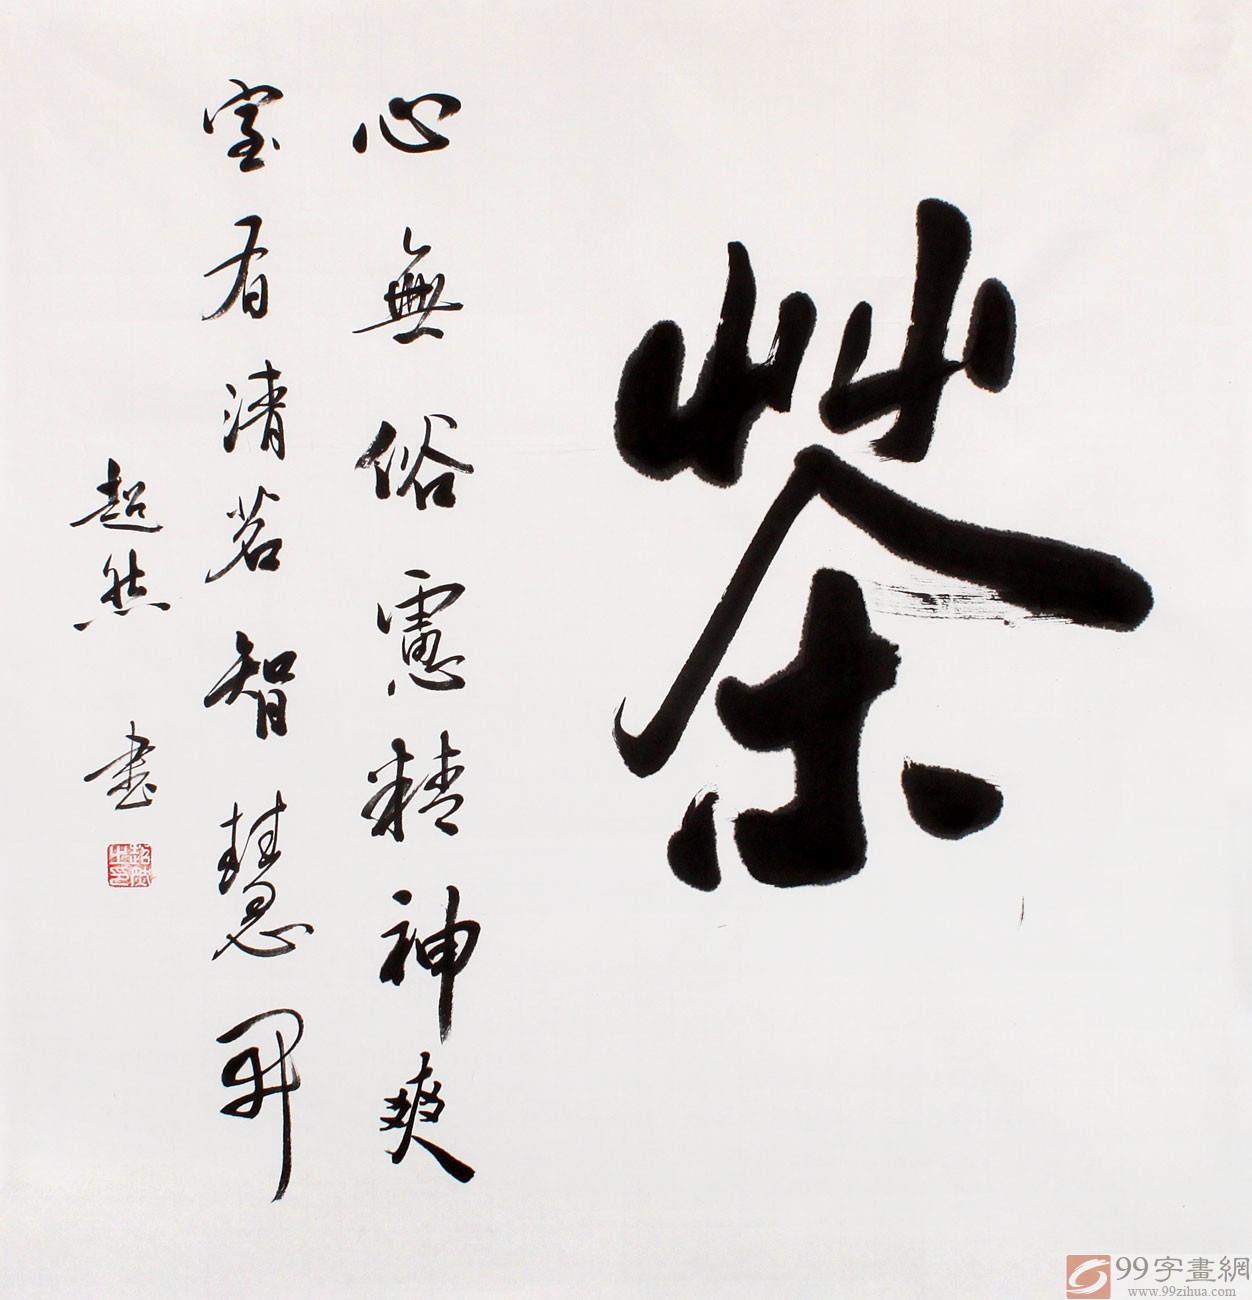 茶
心無俗慮精神爽
室有清茗智慧開
超然 書
99字畫網
www.99zihua.com